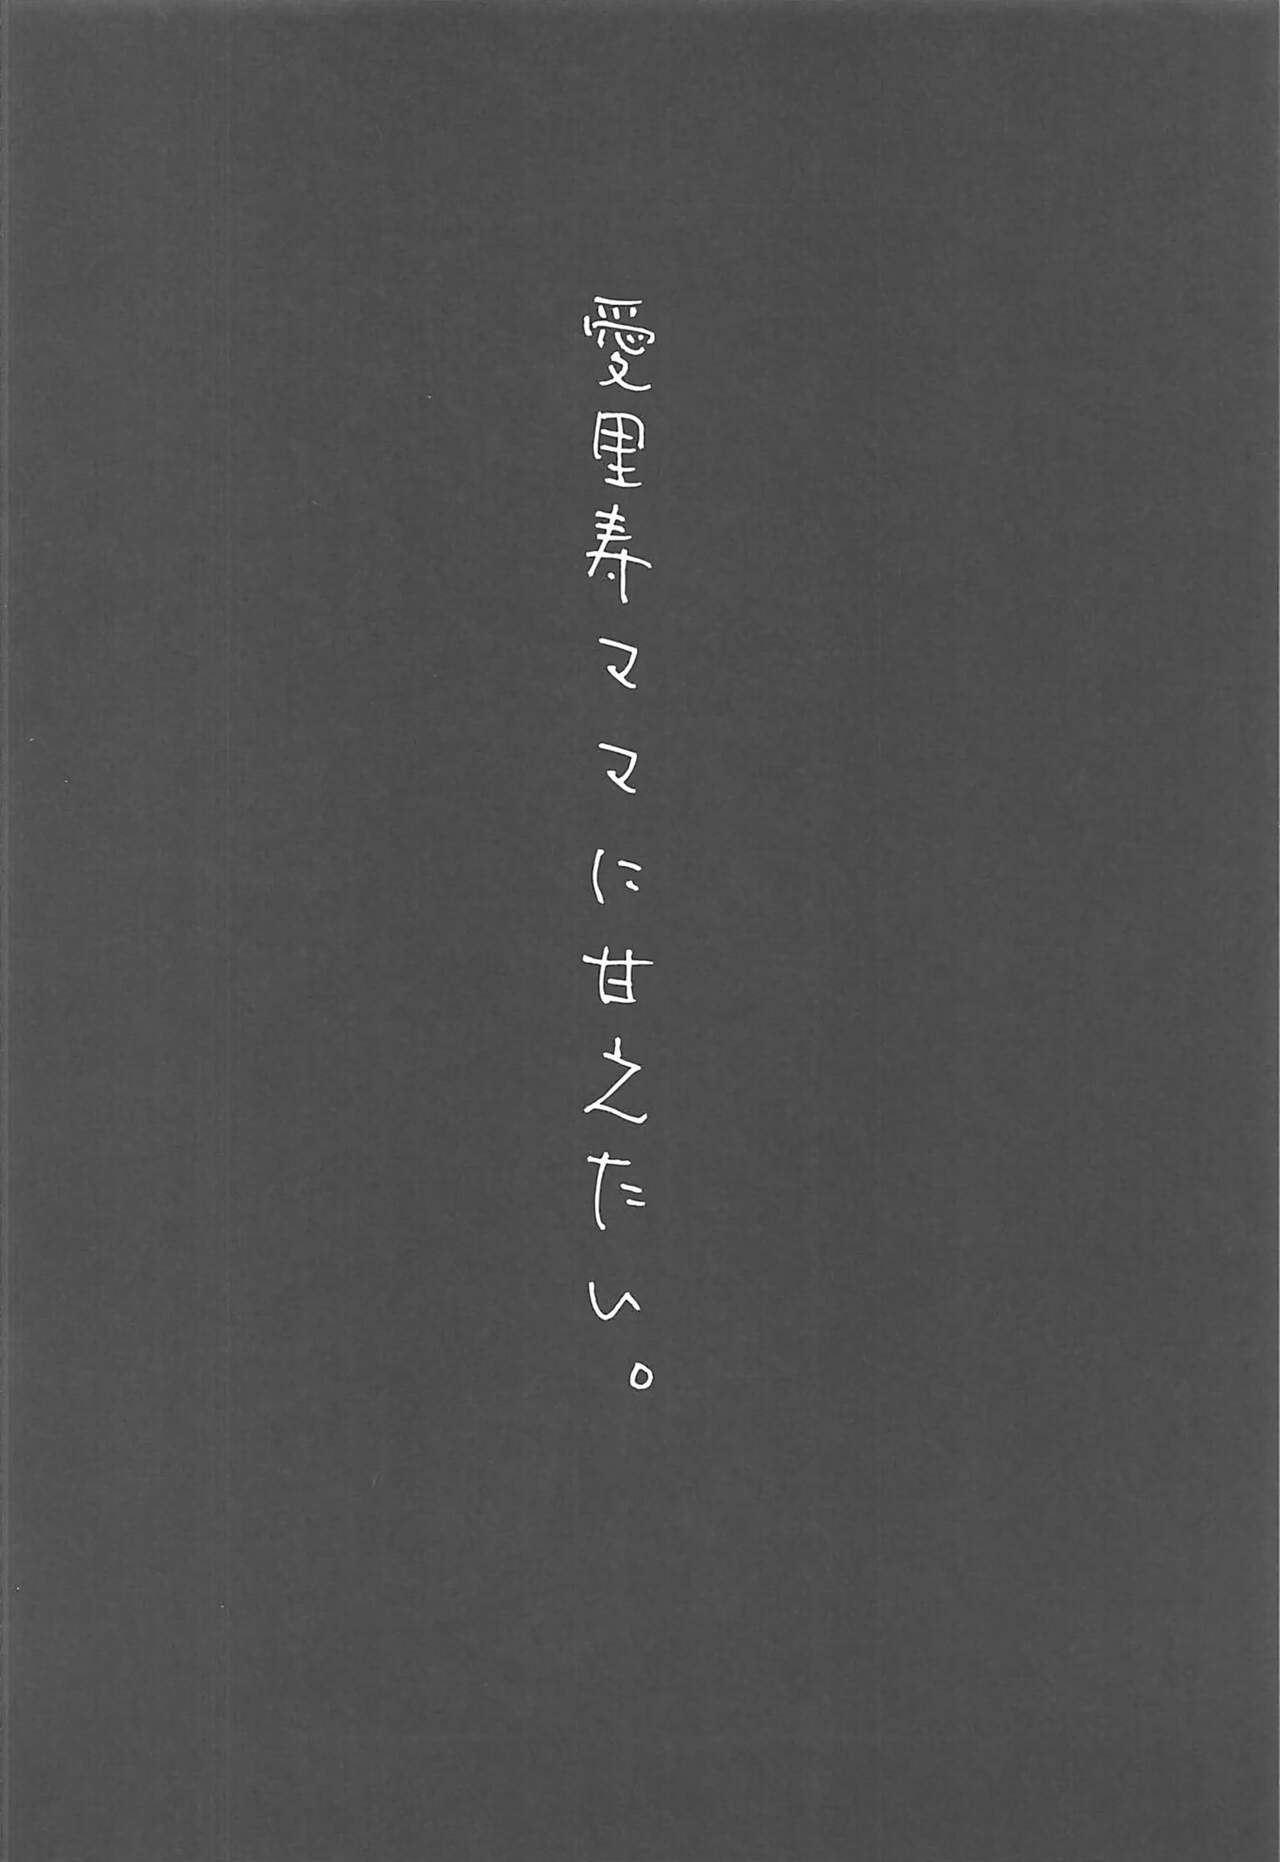 愛里寿ママに甘えたい。